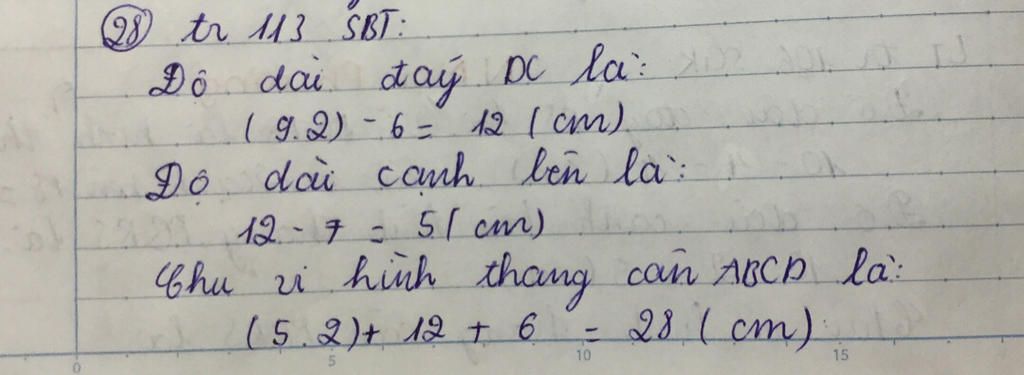 28 tr 113 SBT:
Độ dài đáy DC là:
(9.2) - 6 = 12 (cm)
Độ dài cạnh bên là:
12 - 7 = 5 (cm)
Chu vi hình thang cân ABCD là:
(5.2) + 12 + 6 = 28 (cm)
0 5 10 15